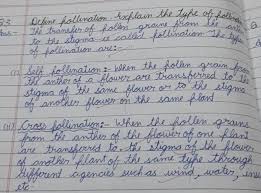 Define pollination. Explain the type of pollination
The transfer of pollen grains from the
to the stigma is called pollination The type
of pollination are:-
(i) Self pollination:- When the pollen grain from
the anther of a flower are transferred to the
stigma of the same flower or to the stigma
of another flower on the same plant
(ii) Cross pollination:- When the pollen grains
from the anther of the flower of one plant
are transferred to the stigma of the flower
of another plant of the same type through
different agencies such as wind, water,
etc